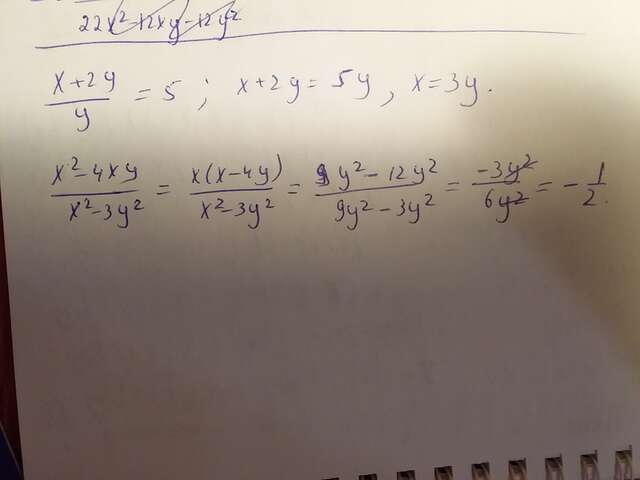 22x²+12xy-12y²
(x+2y)/y = 5; x+2y=5y, x=3y.
(x²-4xy)/(x²-3y²) = x(x-4y)/(x²-3y²) = (9y²-12y²)/(9y²-3y²) = -3y²/6y² = -1/2.